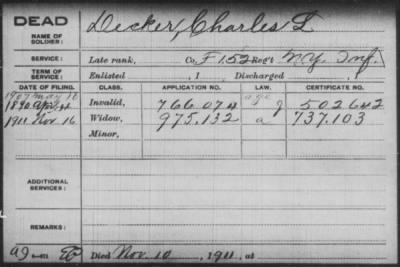 DEAD
NAME OF SOLDIER: Decker, Charles L
SERVICE: Late rank, Co. F 152 Reg't N.Y. Inf.
TERM OF SERVICE: Enlisted , 1 Discharged , 1
DATE OF FILING. CLASS. APPLICATION NO. LAW. CERTIFICATE NO.
1907 May
1890 Invalid, 766.074 g 502642
1911 Nov. 16 Widow, 975.132 a 737.103
Minor,
ADDITIONAL SERVICES:
REMARKS:
Died Nov. 10, 1911, at